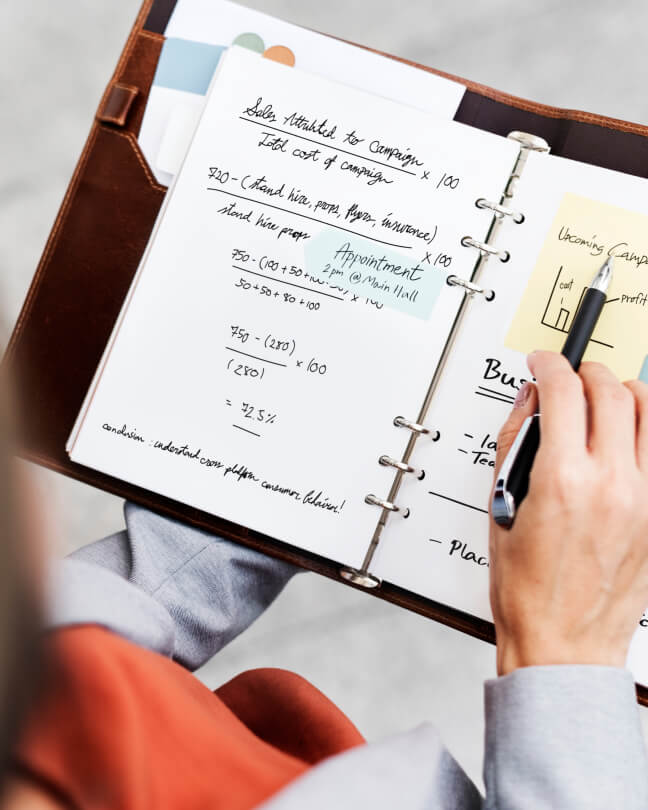 Sales Attributed to Campaign
Total cost of campaign × 100
720 - (stand hire, props, flyers, insurance)
stand hire props × 100
Appointment
2pm @ Main Hall
750 - (100 + 50 +
50 + 50 + 80 + 100 × 100
750 - (280)
(280) × 100
= 72.5%
conclusion : understand cross platform consumer behavior!
Upcoming Campa
cost
profit
Bus
- Ia
- Tea
- Plac